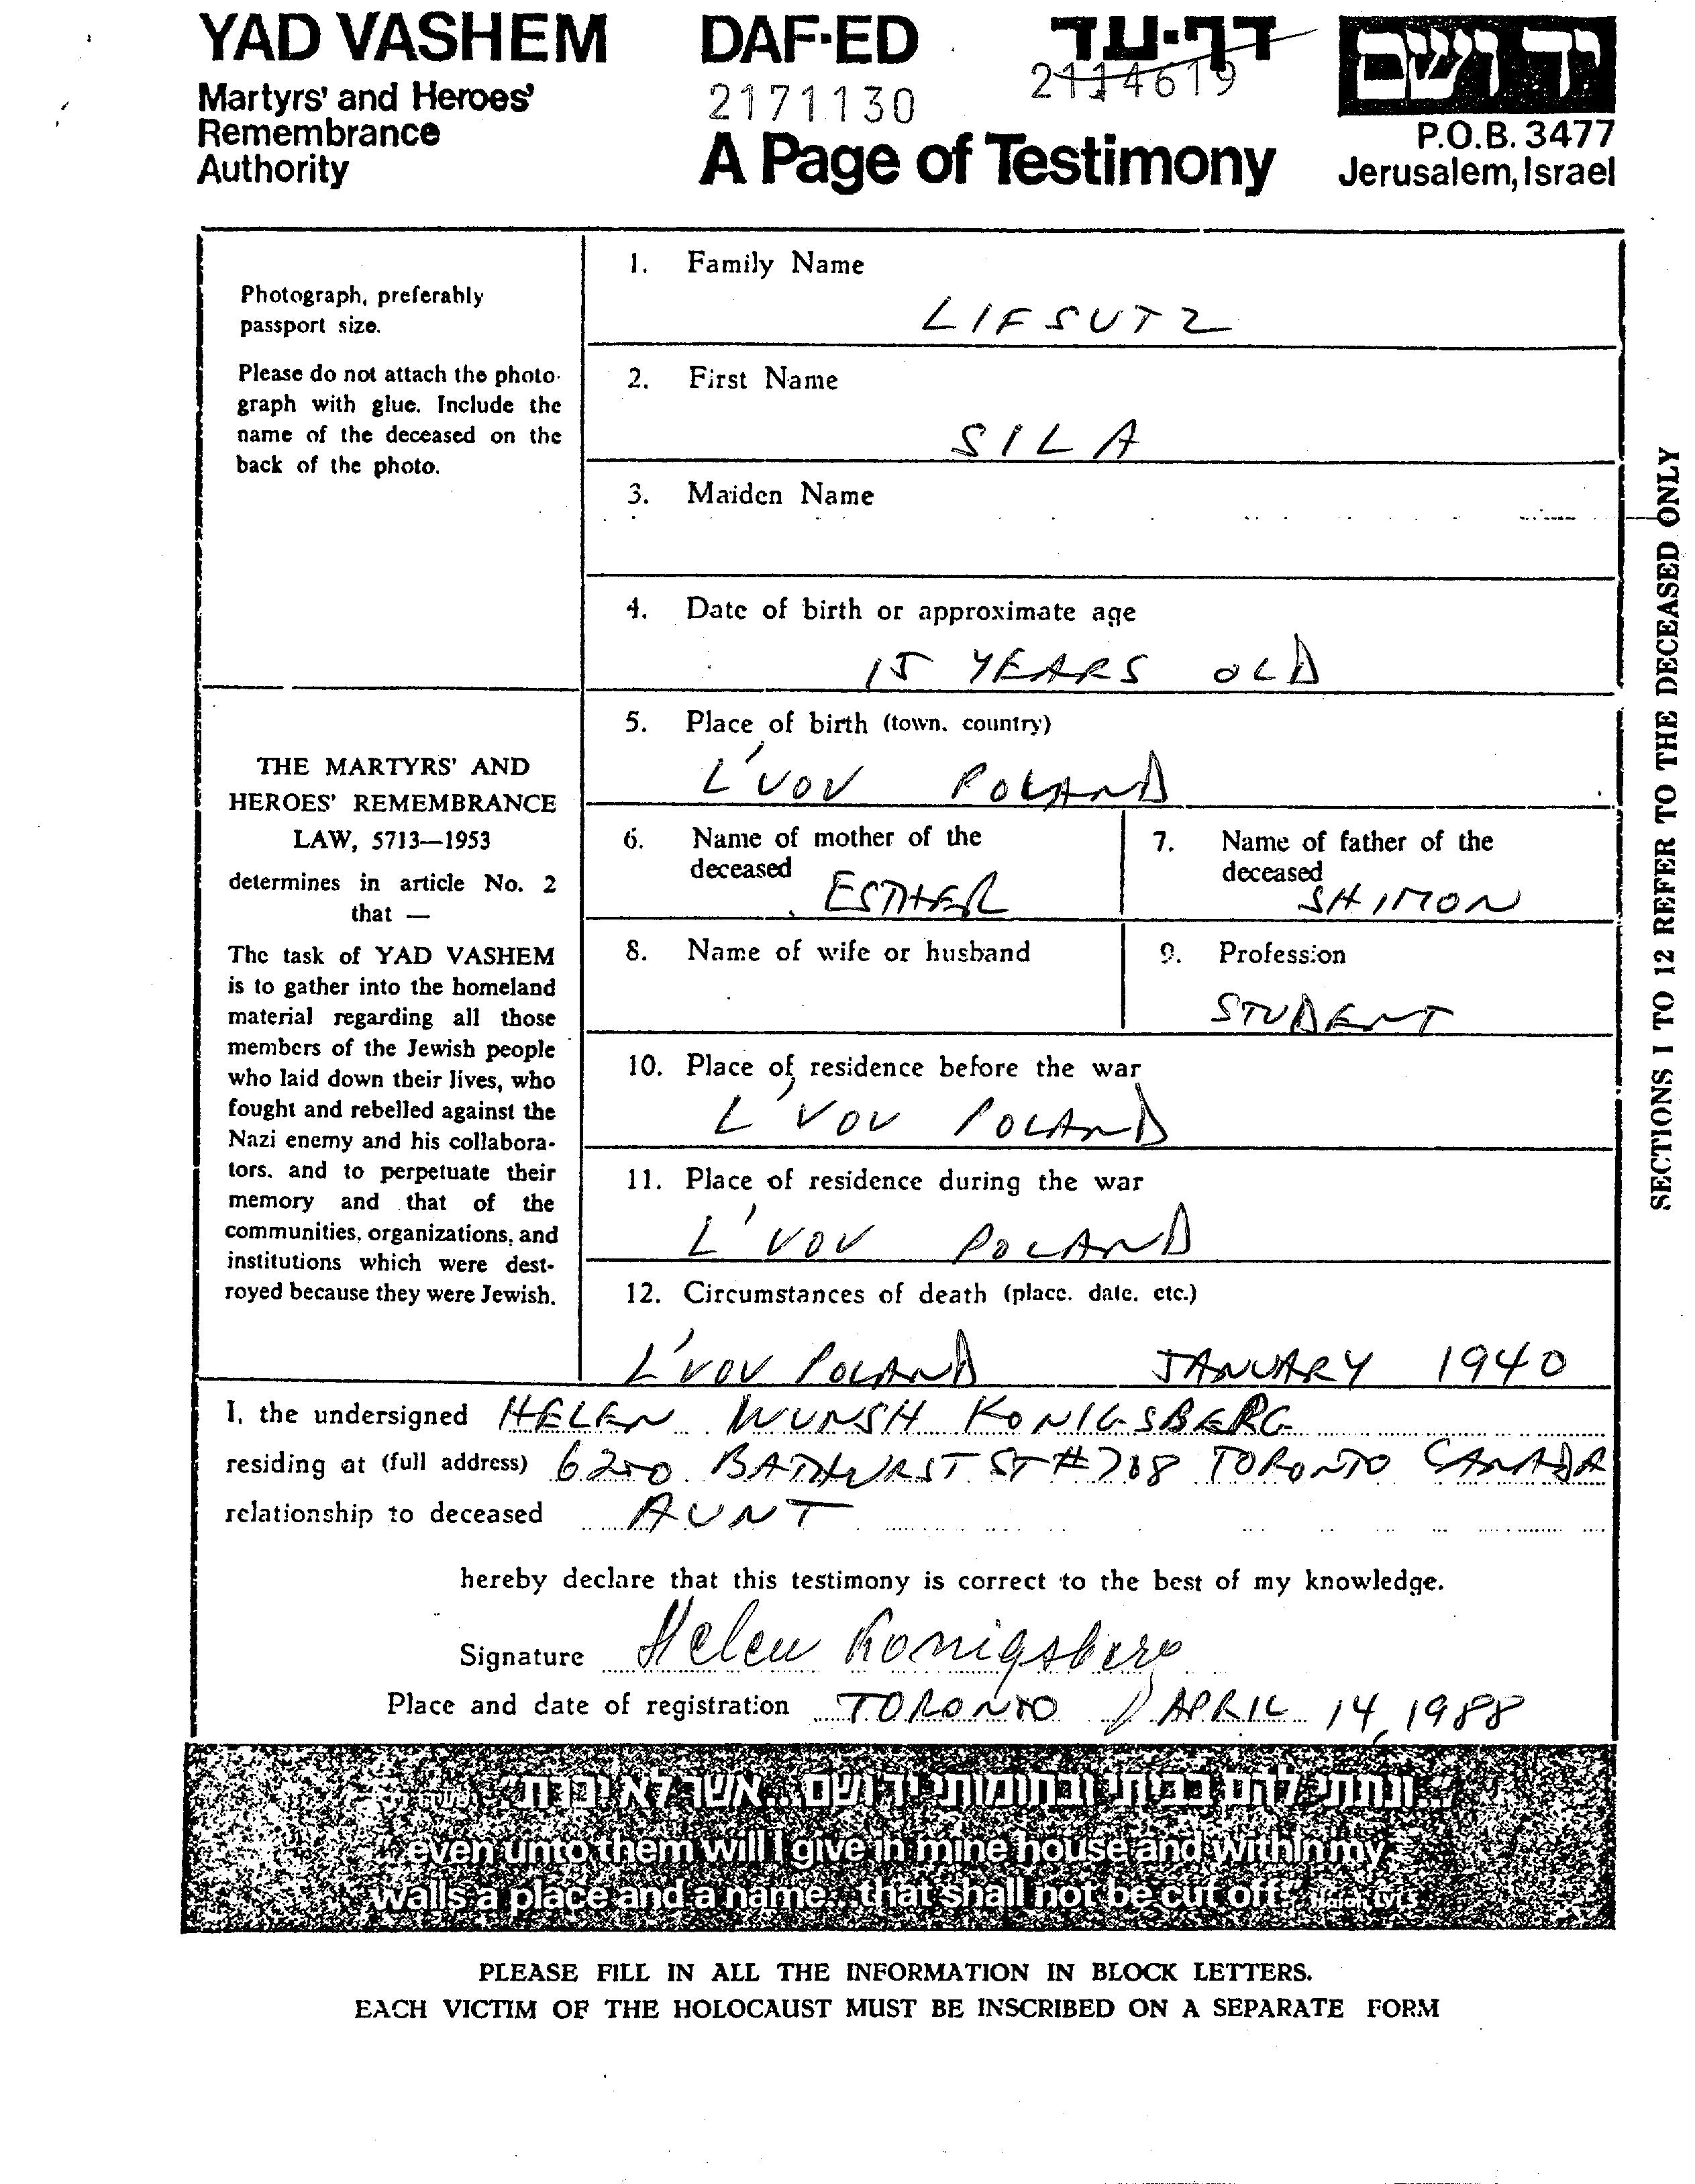 YAD VASHEM
Martyrs' and Heroes'
Remembrance
Authority
DAF-ED
2171130
A Page of Testimony
דף-עד
2114619
יד ושם
P.O.B. 3477
Jerusalem, Israel
Photograph, preferably
passport size.
Please do not attach the photo-
graph with glue. Include the
name of the deceased on the
back of the photo.
1. Family Name
LIFSUTZ
2. First Name
SILA
3. Maiden Name
4. Date of birth or approximate age
15 YEARS OLD
THE MARTYRS' AND
HEROES' REMEMBRANCE
LAW, 5713—1953
determines in article No. 2
that —
The task of YAD VASHEM
is to gather into the homeland
material regarding all those
members of the Jewish people
who laid down their lives, who
fought and rebelled against the
Nazi enemy and his collabora-
tors. and to perpetuate their
memory and that of the
communities, organizations, and
institutions which were dest-
royed because they were Jewish.
5. Place of birth (town. country)
L'VOV POLAND
6. Name of mother of the
deceased
ESTHER
7. Name of father of the
deceased
SHIMON
8. Name of wife or husband
9. Profession
STUDENT
10. Place of residence before the war
L'VOV POLAND
11. Place of residence during the war
L'VOV POLAND
12. Circumstances of death (place. date. etc.)
L'VOV POLAND JANUARY 1940
SECTIONS 1 TO 12 REFER TO THE DECEASED ONLY
I, the undersigned HELEN WUNSH KONIGSBERG
residing at (full address) 6250 BATHURST ST #708 TORONTO CANADA
relationship to deceased AUNT
hereby declare that this testimony is correct to the best of my knowledge.
Signature Helen Konigsberg
Place and date of registration TORONTO APRIL 14, 1988
"...ונתתי להם בביתי ובחומותי יד ושם...אשר לא יכרת"
"...even unto them will I give in mine house and within my
walls a place and a name...that shall not be cut off"
PLEASE FILL IN ALL THE INFORMATION IN BLOCK LETTERS.
EACH VICTIM OF THE HOLOCAUST MUST BE INSCRIBED ON A SEPARATE FORM